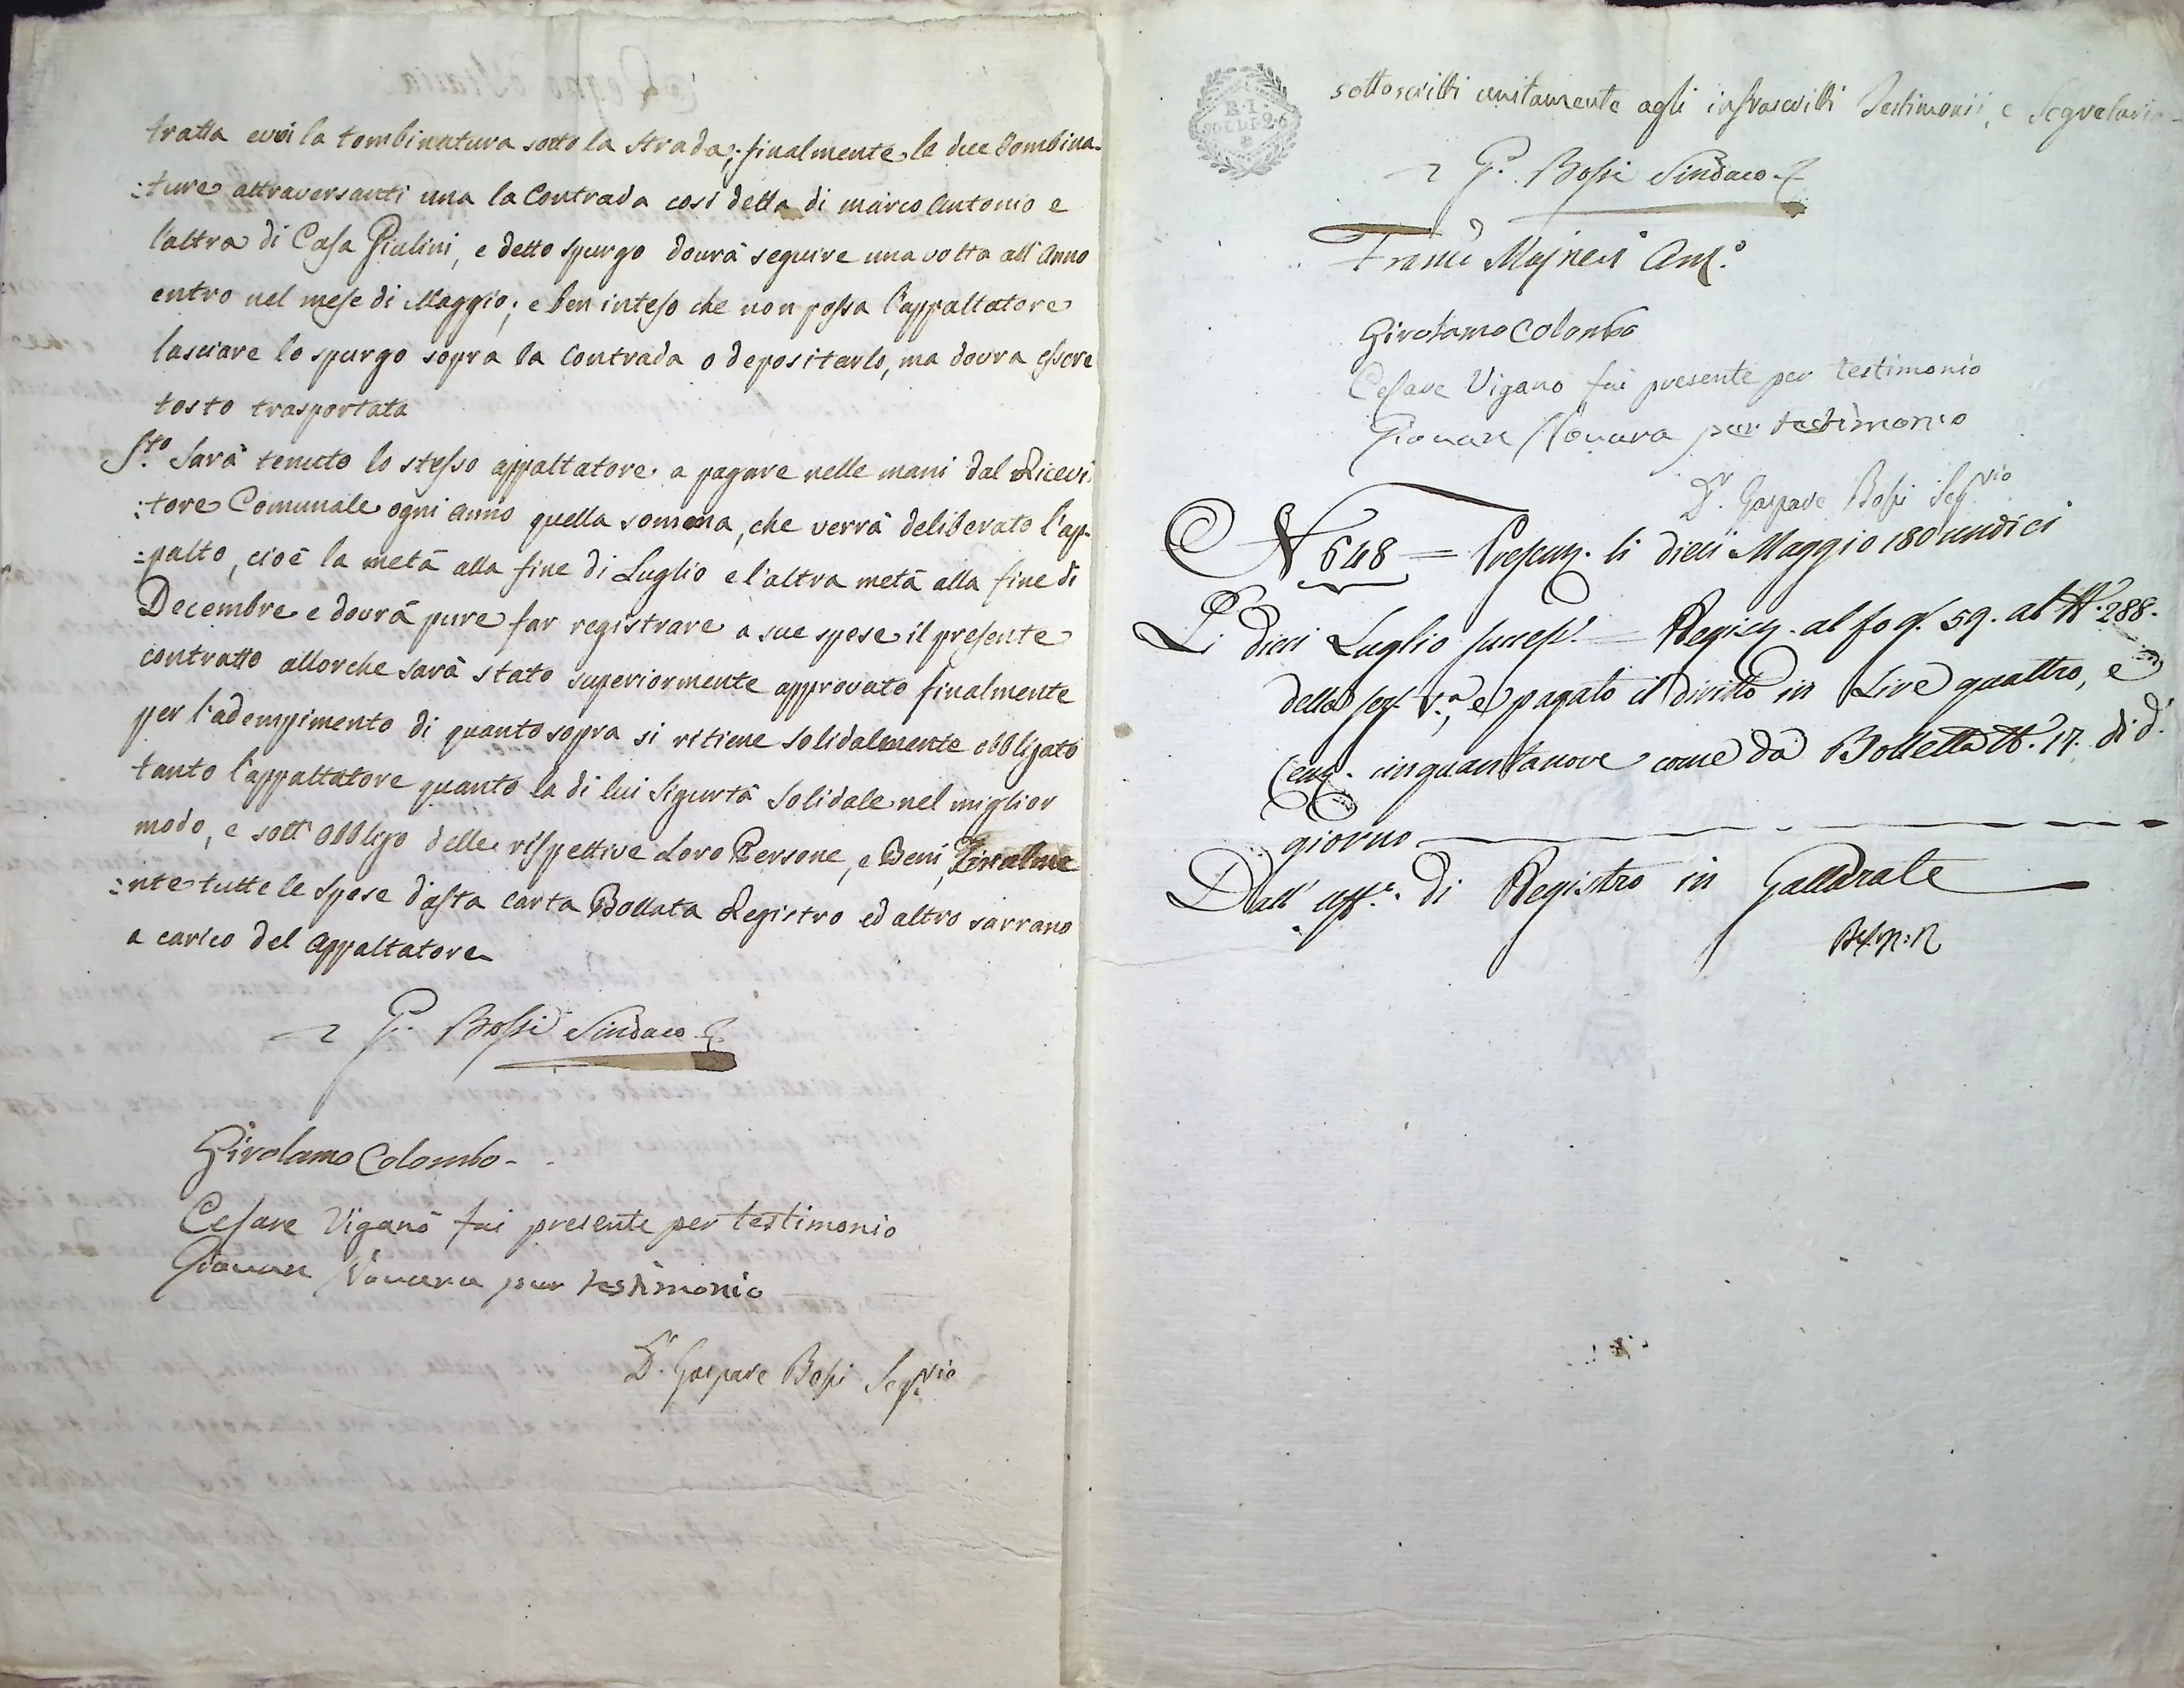 tratta evvi la tombinatura sotto la strada; finalmente le due Tombina-
:ture attraversanti una la Contrada così detta di marco Antonio e
l'altra di Casa Giulini, e detto spurgo dovrà seguire una volta all'Anno
entro nel mese di Maggio; e ben inteso che non possa l'appaltatore
lasciare lo spurgo sopra la Contrada o depositarlo, ma dovra essere
tosto trasportata
Sarà tenuto lo stesso appaltatore a pagare nelle mani dal Ricevi
:tore Comunale ogni anno quella somma, che verrà deliberato l'ap-
:palto, cioè la metà alla fine di Luglio e l'altra metà alla fine di
Decembre e dovrà pure far registrare a sue spese il presente
contratto allorche sarà stato superiormente approvato finalmente
per l'adempimento di quanto sopra si ritiene solidalmente obbligato
tanto l'appaltatore quanto la di lui Sigurtà Solidale nel miglior
modo, e sott'obbligo delle rispettive Loro Persone, e Beni, Finalme
:nte tutte le spese d'asta Carta Bollata Registro ed altro sarrano
a carico del Appaltatore
G. Bossi Sindaco
Girolamo Colombo
Cesare Viganò fui presente per testimonio
Giovan Novara per testimonio
Dr. Gaspare Bossi Seg.rio
R. I.
SOLDI 26
sottoscritti unitamente agli infrascritti Testimonii, e Segretario
G. Bossi Sindaco
Majneri
Girolamo Colombo
Cesare Vigano fui presente per testimonio
Giovan Novara per testimonio
Dr. Gaspare Bossi Seg.rio
N 648 = li dieci Maggio 180undici
Li dieci Luglio = al fog. 59. al N. 288.
e pagato il diritto in Lire quattro, e
Cent. cinquantanove come da Bolletta N. 17. di d.
giorno
Dall' uff. di Registro in Gallarate